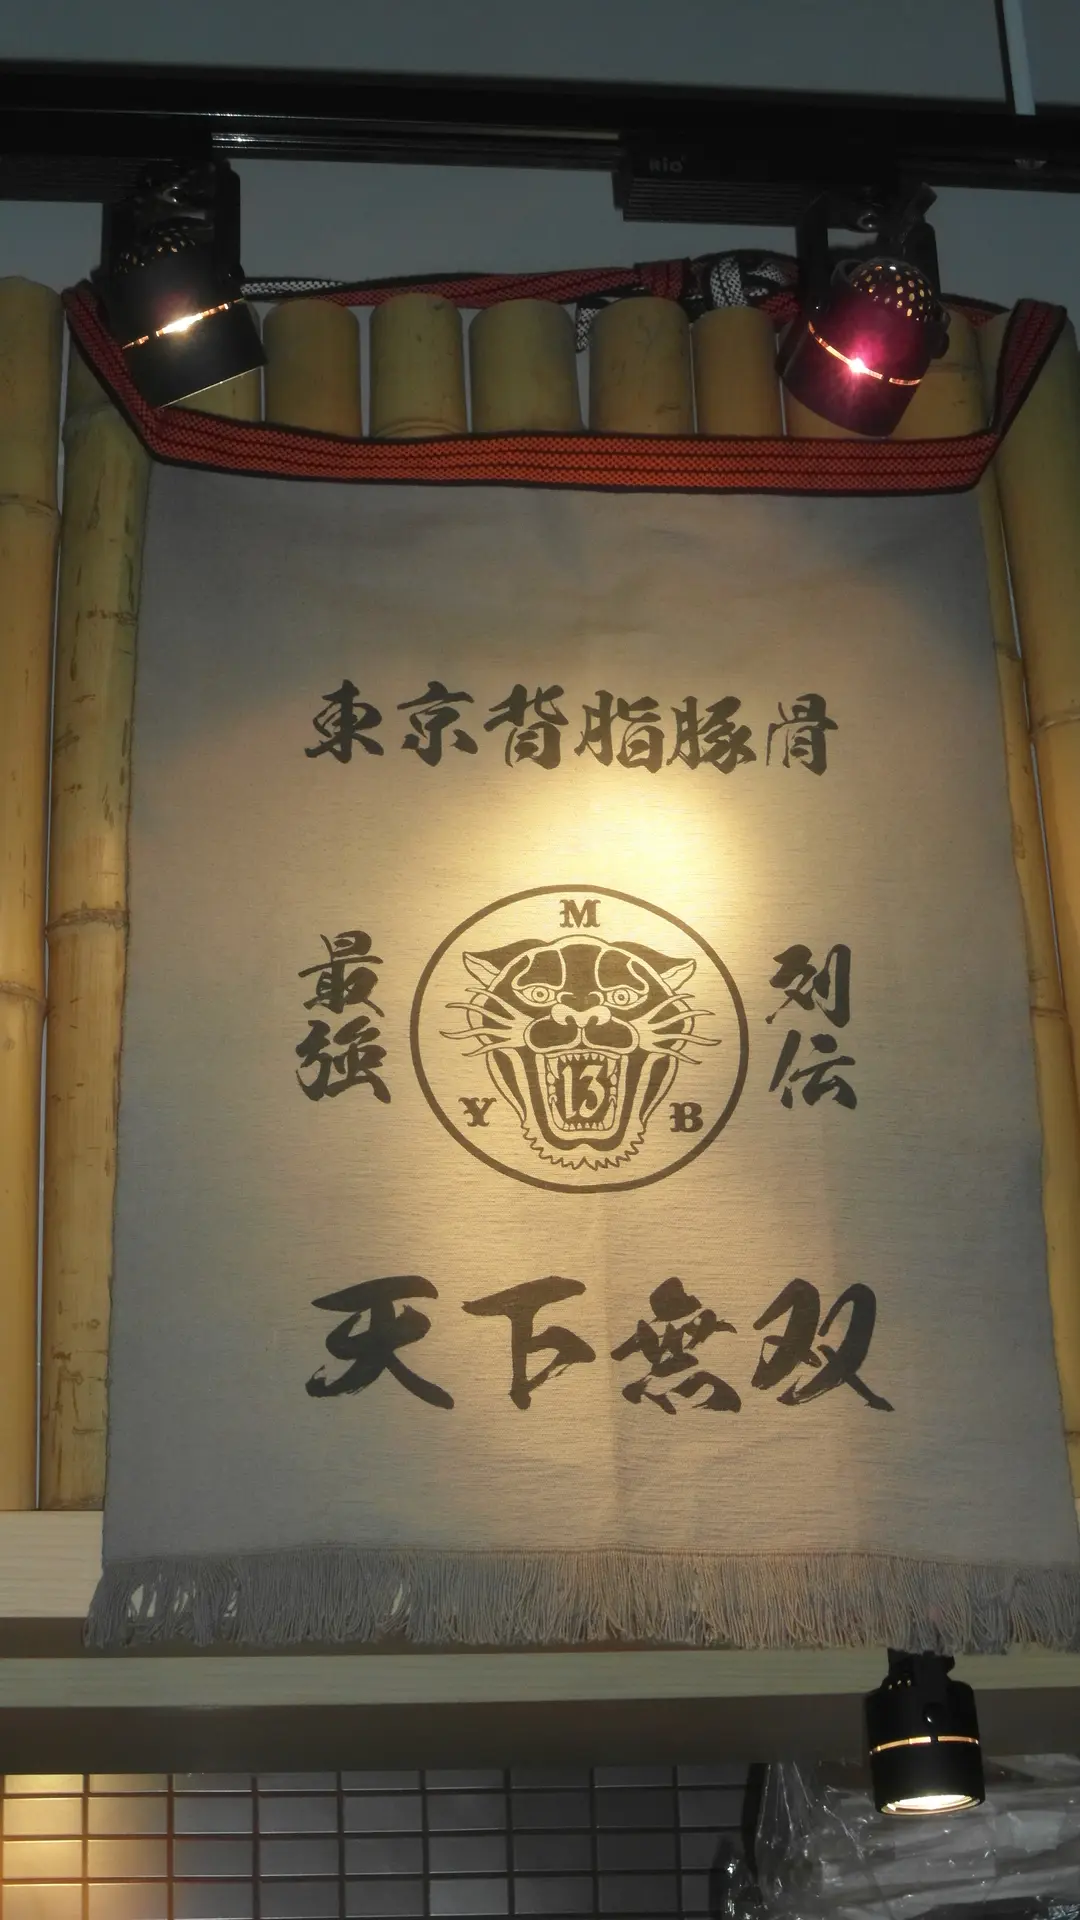 RIO
東京背脂豚骨
M
最強
列伝
13
Y
B
天下無双